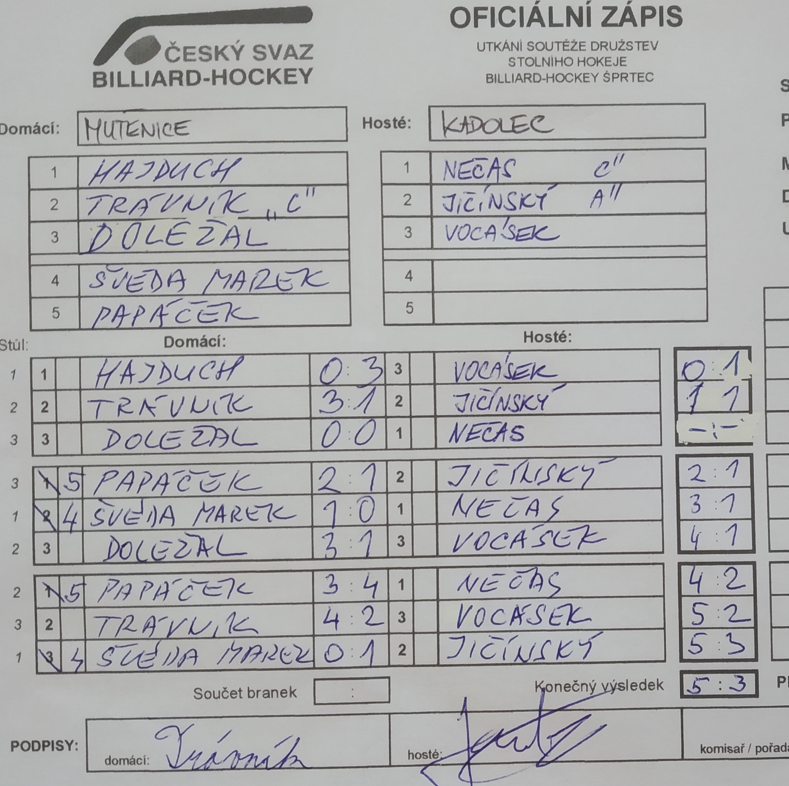 ČESKÝ SVAZ
BILLIARD-HOCKEY
OFICIÁLNÍ ZÁPIS
UTKÁNÍ SOUTĚŽE DRUŽSTEV
STOLNÍHO HOKEJE
BILLIARD-HOCKEY ŠPRTEC
Domácí: MUTĚNICE Hosté: KADOLEC
1 HAJDUCH 1 NEČAS C"
2 TRÁVNÍK „C" 2 JIČÍNSKÝ A"
3 DOLEŽAL 3 VOCÁSEK
4 ŠVEDA MAREK 4
5 PAPÁČEK 5
Stůl: Domácí: Hosté:
1 1 HAJDUCH 0:3 3 VOCÁSEK 0:1
2 2 TRÁVNÍK 3:1 2 JIČÍNSKÝ 1 1
3 3 DOLEŽAL 0:0 1 NEČAS -:-
3 1 5 PAPÁČEK 2:1 2 JIČÍNSKÝ 2:1
1 2 4 ŠVEDA MAREK 1:0 1 NEČAS 3:1
2 3 DOLEŽAL 3:1 3 VOCÁSEK 4:1
2 1 5 PAPÁČEK 3:4 1 NEČAS 4:2
3 2 TRÁVNÍK 4:2 3 VOCÁSEK 5:2
1 3 4 ŠVEDA MAREK 0:1 2 JIČÍNSKÝ 5:3
Součet branek : Konečný výsledek 5:3
PODPISY: domácí: Trávník hosté: komisař /